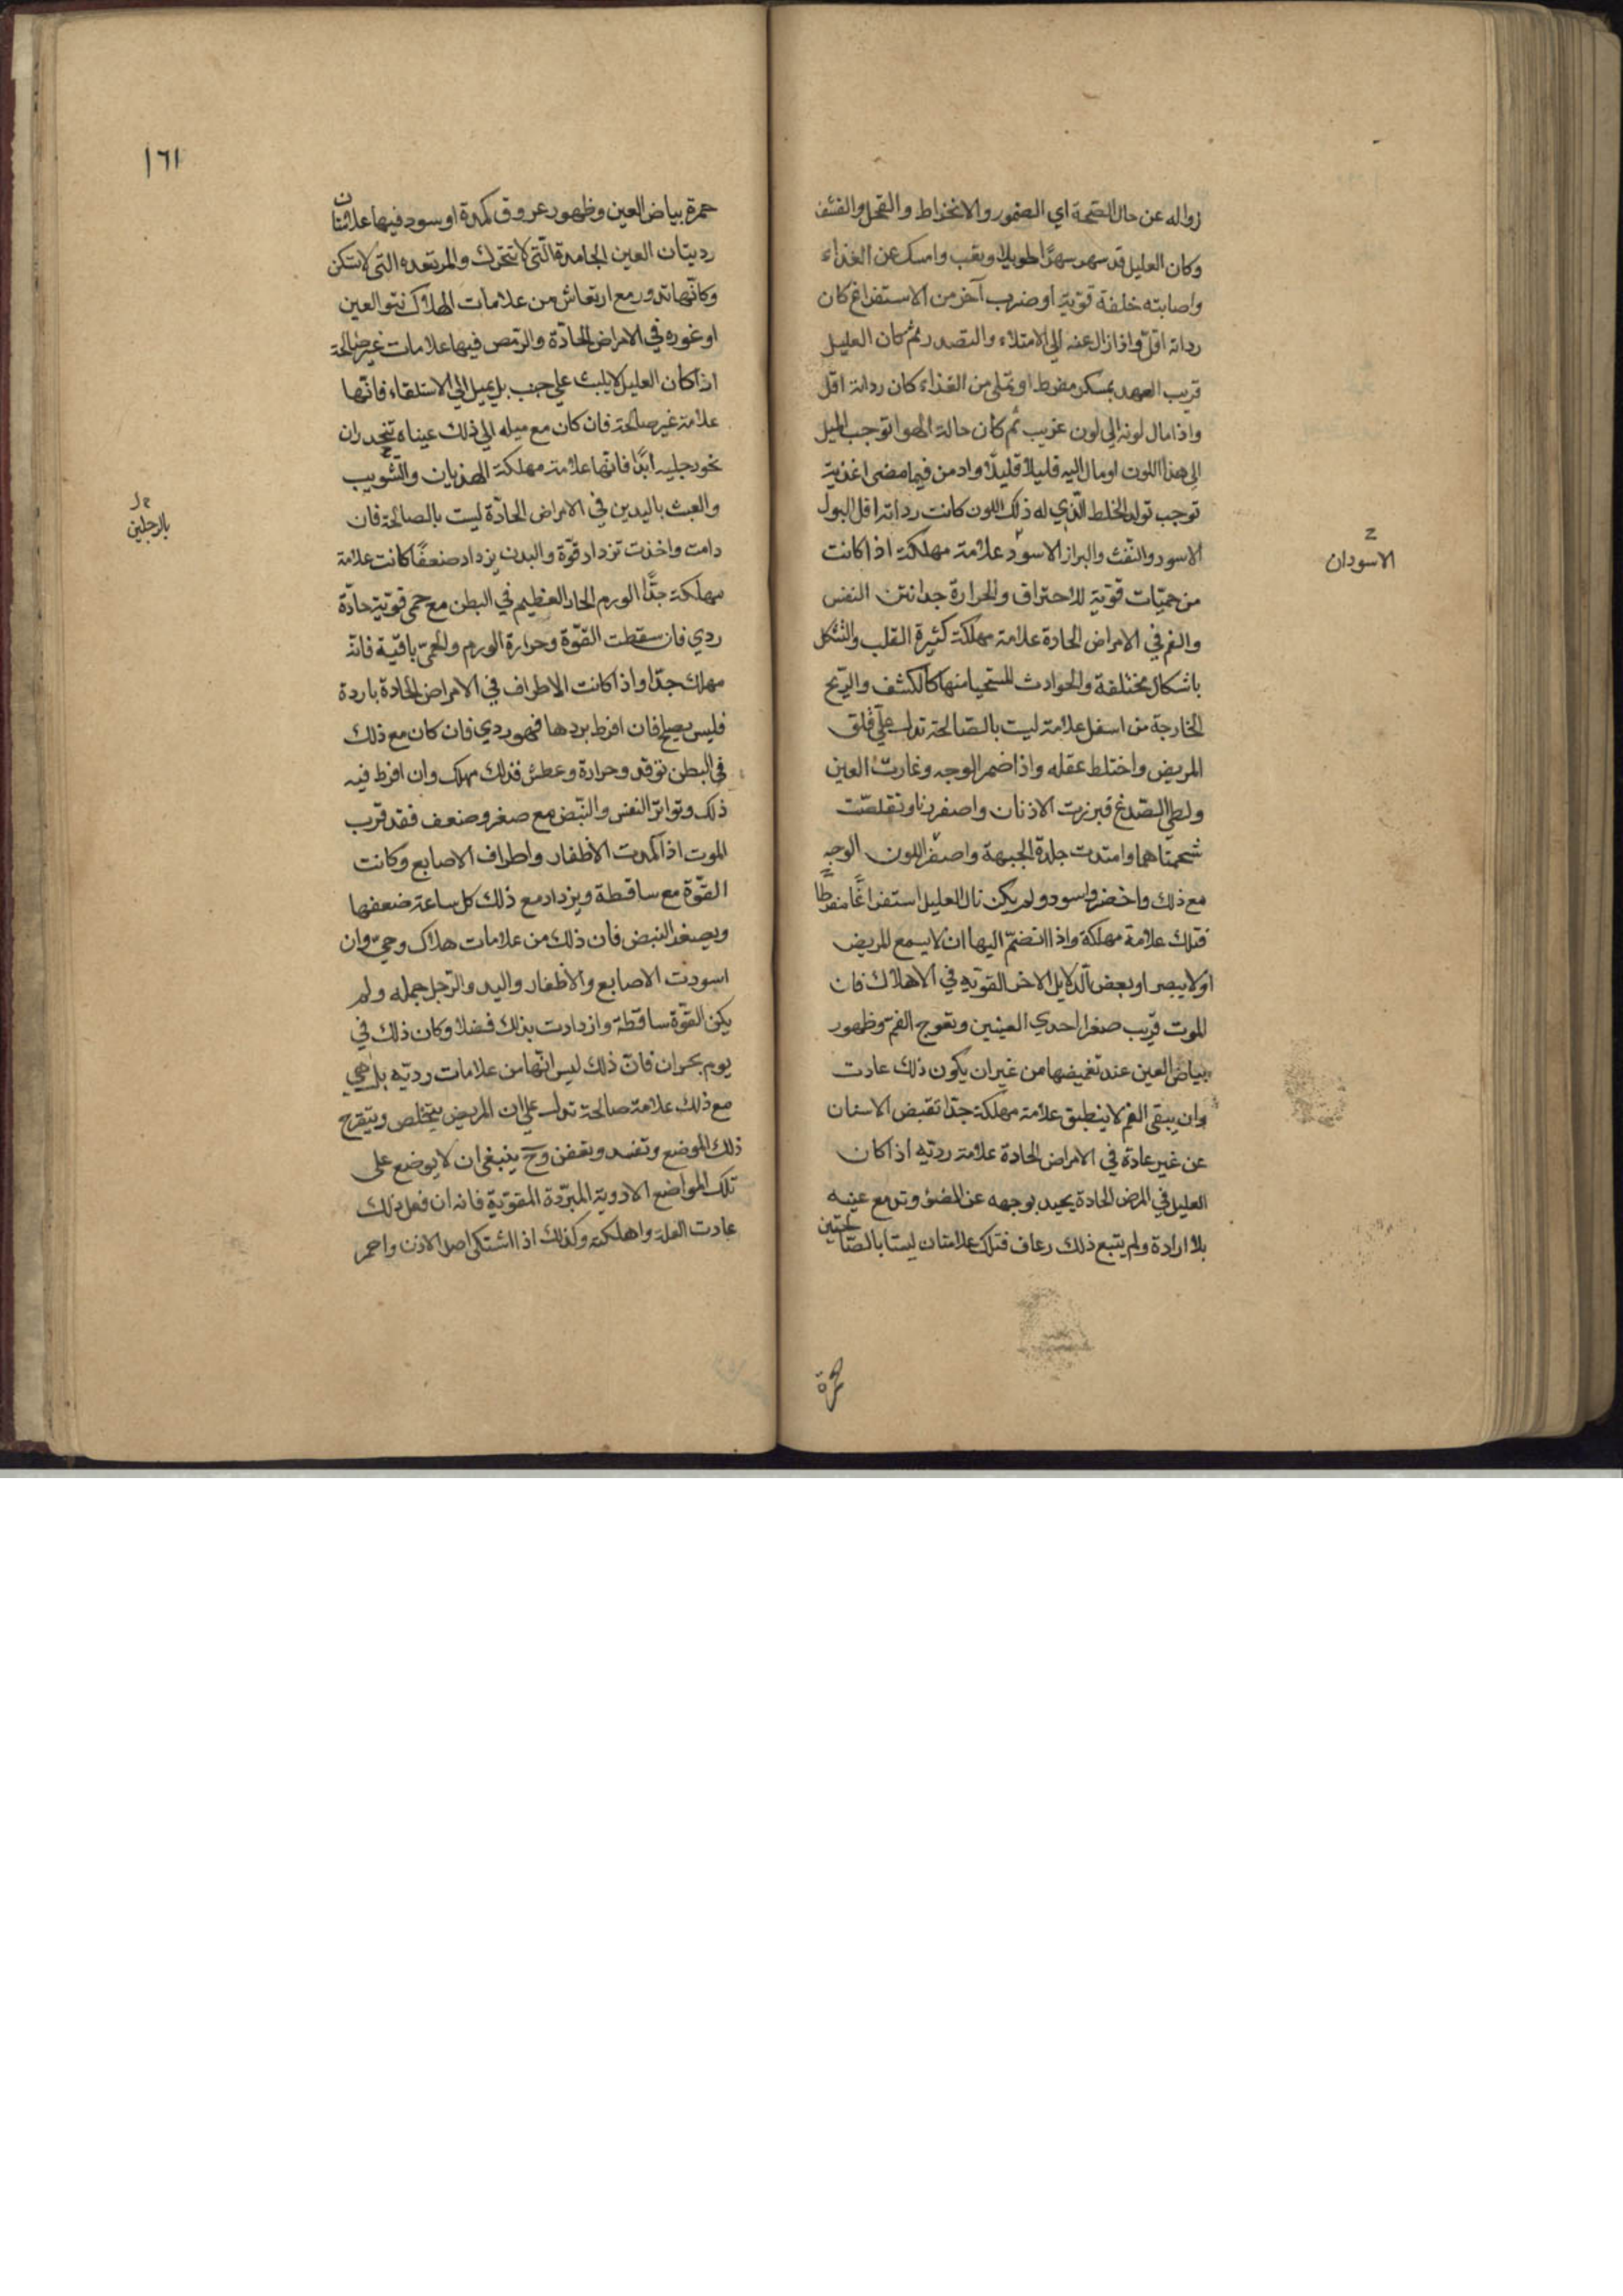 زواله عن حال الصّحة اي الضمور والانخراط والقحل والقشف
وكان العليل قد سهر سهرًا طويلا وتعب وامسك عن الغذاء
واصابته خلفة قويّة او ضرب آخر من الاستفراغ كان
رداته اقلّ واذا زال عنه الي الامتلاء والتصدر ثم كان العليل
قريب العهد بسكر مفرط او تملي من الغذاء كان رداته اقل
واذا مال لونه الي لون غريب ثم كان حالة الهوا توجب الميل
الي هذا اللون او مال اليه قليلا قليلًا وادمن فيما مضى اغذية
توجب تولد الخلط الّذي له ذلك اللون كانت رداته اقل البول
الاسود والنّفث والبراز الاسود علامة مهلكة اذا كانت
الاسودان
من حميّات قويّة للاحتراق والحرارة جدا نتن النفس
والفم في الامراض الحادة علامة مهلكة كثيرة القلب والتشكل
باشكال مختلفة والحوادث المستحيا منها كالكشف والريح
الخارجة من اسفل علامة ليت بالصّالحة تدل علي قلق
المريض واختلط عقله واذا ضمر الوجه وغارت العين
ولطي الصّدغ فبرزت الاذنان واصفرتا وتقلصّت
شحمتاهما وامتدت جلدة الجبهة واصفرّ اللون الوجه
مع ذلك واخضر واسود ولم يكن نال العليل استفراغًا مفرطًا
فتلك علامة مهلكة واذا انضمّ اليها ان لا يسمع المريض
او لا يبصر او بعض الدلايل الاخر القويّه في الاهلاك فان
الموت قريب صغر احدي العينين وتعوج الفم وظهور
بياض العين عند تغميضها من غير ان يكون ذلك عادت
وان يبقى الفم لا ينطبق علامة مهلكة جدّا تقبض الاسنان
عن غير عادة في الامراض الحادة علامة رديّه اذا كان
العليل في المرض الحادة يحيد بوجهه عن الضوء وتدمع عينيه
بلا ارادة ولم يتبع ذلك رعاف فتلك علامتان ليستا بالصّالحتين
حمرة
١٦١
حمرة بياض العين وظهور عروق كمدة او سود فيها علامتان
رديتان العين الجامدة الّتى لا تتحرّك والمرتعده التى لا تسكن
وكانّها تدور مع ارتعاش من علامات الهلاك نتو العين
او غوره في الامراض الحادّة والرّمص فيها علامات غير صالحة
اذا كان العليل لا يلبث علي جنب بل يميل الي الاستلقاء فانّها
علامة غير صالحة فان كان مع ميله الي ذلك عيناه تنحدران
نحو رجليه ابدًا فانّها علامة مهلكة الهذيان والتّثويب
والعبث باليدين في الامراض الحادّة ليت بالصالحة فان
بالرجلين
دامت واخذت تزداد قوّة والبدن يزداد ضعفًا كانت علامة
مهلكة جدًّا الورم الحار العظيم في البطن مع حمى قويّة حادّة
ردي فان سقطت القوّة وحرارة الورم والحمىّ باقية فانّه
مهلك جدّا واذا كانت الاطراف في الامراض الحادة باردة
فليس بصلح فان افرط بردها فهو ردي فان كان مع ذلك
في البطن توقد وحرارة وعطش فذلك مهلك وان افرط فيه
ذلك وتواتر النفس والنّبض مع صغر وضعف فقد قرب
الموت اذا كمدت الاظفار واطراف الاصابع وكانت
القوّة مع ساقطة ويزداد مع ذلك كل ساعة ضعفها
ويصغر النبض فان ذلك من علامات هلاك وحيّ وان
اسودت الاصابع والاظفار واليد والرّجل جمله ولم
يكن القوّة ساقطة وازدادت بذلك فضلا وكان ذلك في
يوم بحران فان ذلك ليس انّها من علامات رديّه بل هي
مع ذلك علامة صالحة تدل علي ان المريض يتخلص ويتقرح
ذلك الموضع وتفسد وتعفن وح ينبغي ان لا يوضع على
تلك المواضع الادوية المبرّدة المقوّية فانه ان فعل ذلك
عادت العلة واهلكته وكذلك اذا اشتكى اصل الاذن واحمر